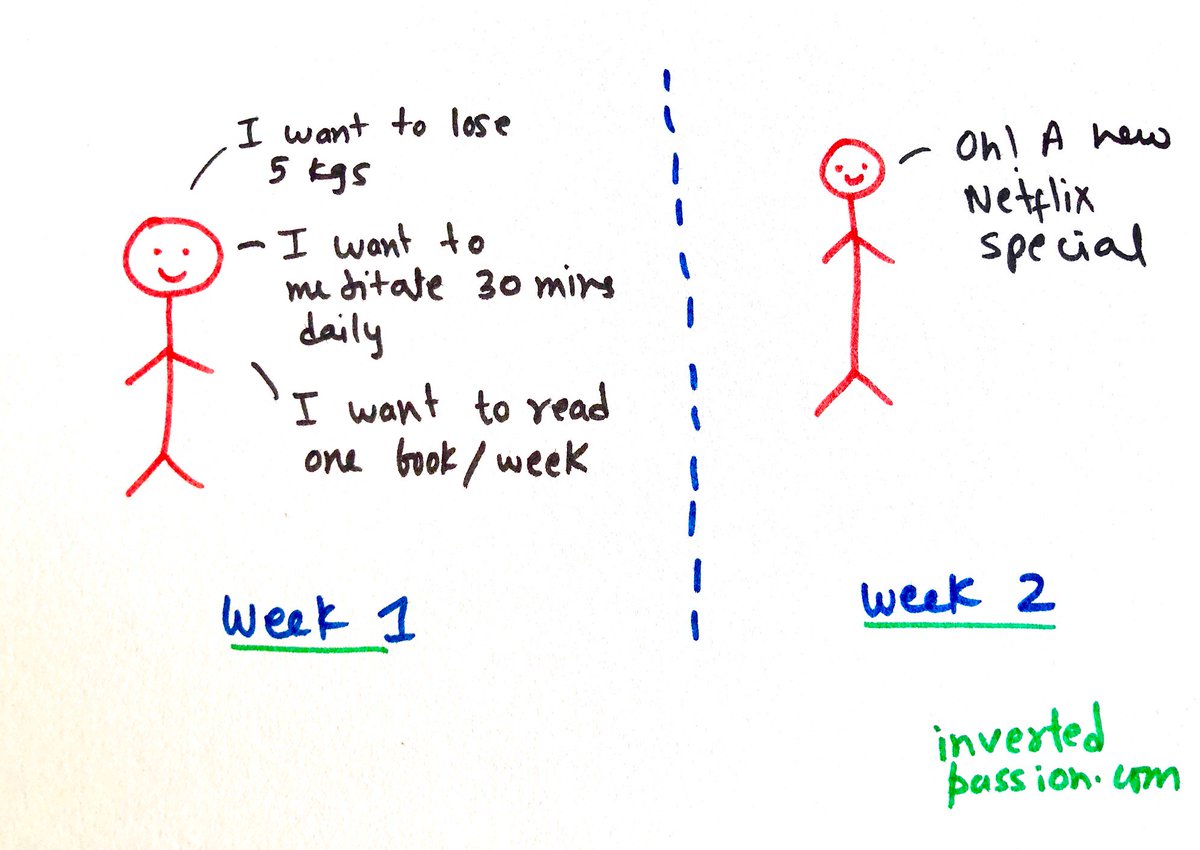 I want to lose
5 kgs
I want to
meditate 30 mins
daily
I want to read
one book/week
week 1
Oh! A new
Netflix
special
week 2
inverted
passion.com